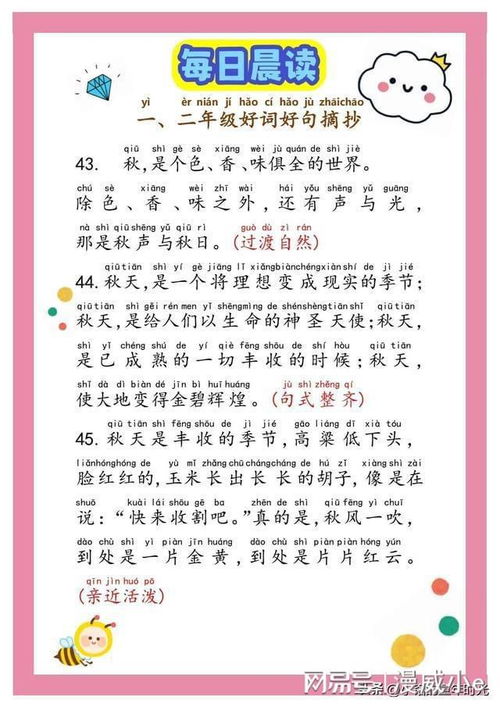 每日晨读
yì èr nián jí hǎo cí hǎo jù zhāichāo
一、二年级好词好句摘抄
qiū shì gè sè xiāng wèi jù quán de shì jiè
43. 秋,是个色、香、味俱全的世界。
chú sè xiāng wèi zhī wài hái yǒu shēng yǔ guāng
除色、香、味之外,还有声与光,
nà shì qiū shēng yǔ qiū rì guò dù zì rán
那是秋声与秋日。(过渡自然)
qiū tiān shì yí gè jiāng lǐ xiǎng biàn chéng xiàn shí de jì jié
44. 秋天,是一个将理想变成现实的季节;
qiū tiān shì gěi rén men yǐ shēng mìng de shén shèng tiān shǐ qiū tiān
秋天,是给人们以生命的神圣天使;秋天,
shì yǐ chéng shú de yí qiè fēng shōu de shí hou qiū tiān
是已成熟的一切丰收的时候;秋天,
shǐ dà dì biàn dé jīn bì huī huáng jù shì zhěng qí
使大地变得金碧辉煌。(句式整齐)
qiū tiān shì fēng shōu de jì jié gāo liáng dī xià tóu
45. 秋天是丰收的季节,高粱低下头,
liǎn hóng hóng de yù mǐ zhǎng chū cháng cháng de hú zi xiàng shì zài
脸红红的,玉米长出长长的胡子,像是在
shuō kuài lái shōu gē ba zhēn de shì qiū fēng yì chuī
说:“快来收割吧。”真的是,秋风一吹,
dào chù shì yí piàn jīn huáng dào chù shì piàn piàn hóng yún
到处是一片金黄,到处是片片红云。
qīn jìn huó pō
(亲近活泼)
网易号 | 漫威小e